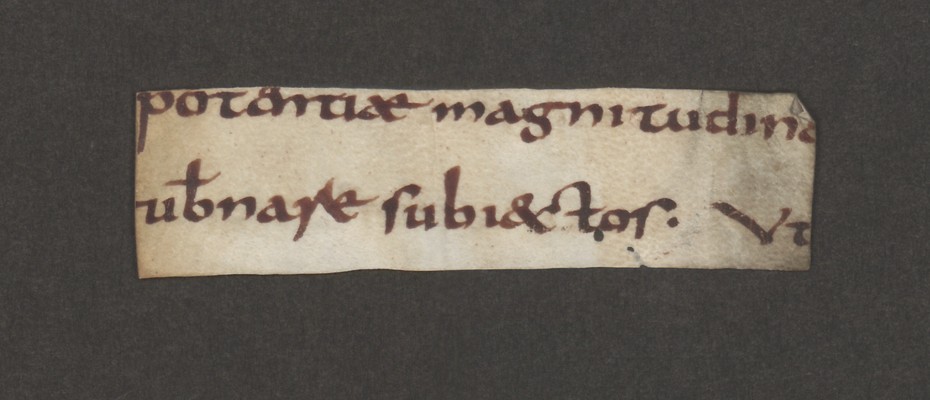 potentiæ magnitudine
ub̄nare subiectos. Vt